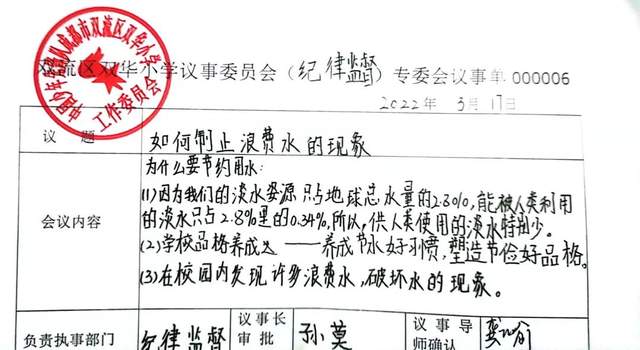 中国少年先锋队成都市双流区双华小学
工作委员会
双流区双华小学议事委员会（纪律监督）专委会议事单 000006
2022年 3月17日
议 题
如何制止浪费水的现象
会议内容
为什么要节约用水:
(1)因为我们的淡水资源只占地球总水量的2.8%,能被人类利用
的淡水只占2.8%里的0.34%,所以,供人类使用的淡水特别少。
(2)学校品格养成——养成节水好习惯,塑造节俭好品格。
(3)在校园内发现许多浪费水,破坏水的现象。
负责执事部门
纪律监督
议事长
审 批
孙
议 事 导
师确认
龚